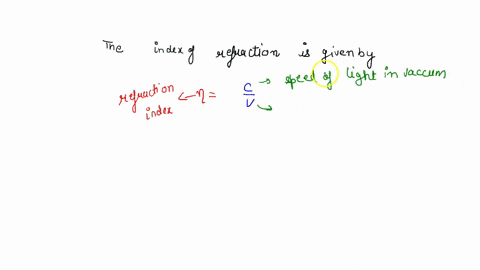 The index of refraction is given by
→ speed of light in vaccum
refraction index ← η = c/v →